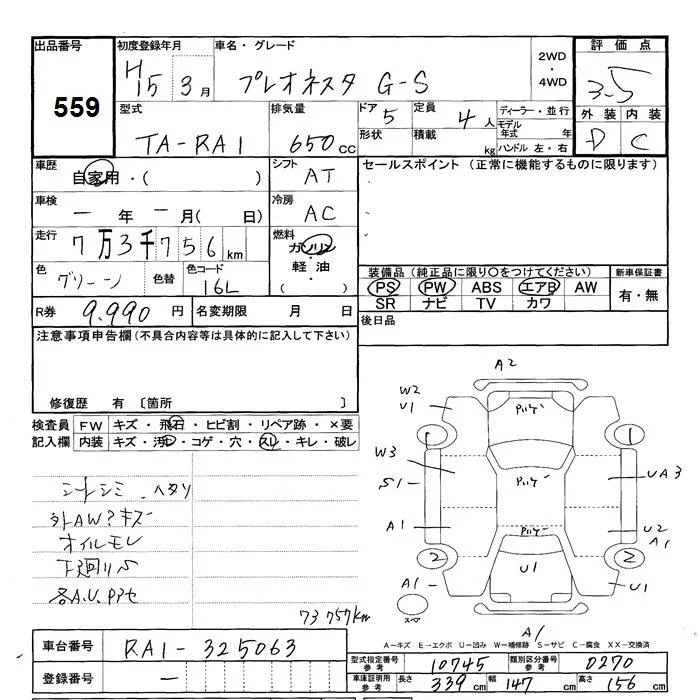 出品番号
559
初度登録年月
H15 3月
車名・グレード
プレオネスタ G-S
2WD
・
4WD
評価点
3.5
外装 内装
D C
型式
TA-RA1
排気量
650cc
ドア 5
形状
定員 4人
積載 kg
ディーラー・並行
モデル年式 年
ハンドル 左・右
車歴
自家用・( )
シフト
AT
セールスポイント (正常に機能するものに限ります)
車検
ー年ー月( 日)
冷房
AC
走行
7万3千756km
燃料
ガソリン
軽油
( )
色
グリーン
色替
色コード
16L
装備品(純正品に限り〇をつけてください)
PS PW ABS エアB AW
SR ナビ TV カワ
新車保証書
有・無
R券 9.990円
名変期限 月 日
後日品
注意事項申告欄(不具合内容等は具体的に記入して下さい)
修復歴 有 〔箇所 〕
検査員記入欄
FW キズ・飛石・ヒビ割・リペア跡・×要
内装 キズ・汚レ・コゲ・穴・スレ・キレ・破レ
シートシミ.ヘタリ
外AW?キズ
オイルモレ
下廻りS
各A.U.
73757km
A2
W2
U1
1
1
W3
S1
UA3
A1
U2
A1
2
2
A1
U1
U1
スペア
A1
A-キズ E-エクボ U-凹み W-補修跡 S-サビ C-腐食 XX-交換済
車台番号
RA1-325063
登録番号
ー
型式指定番号参考 10745
類別区分番号参考 0270
車庫証明用参考
長さ 339 幅 147 高さ 156cm